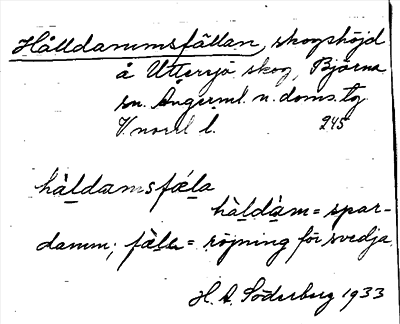 Hålldammsfällan, skogshöjd
å Uttersjö skog, Björna
sn. Ångerml. n. doms. tg
V.norrl l. 245
hàldamsfǽla
hàldàm = spar-
damm; fæ̀la = röjning för svedja.
H. A. Söderberg 1933